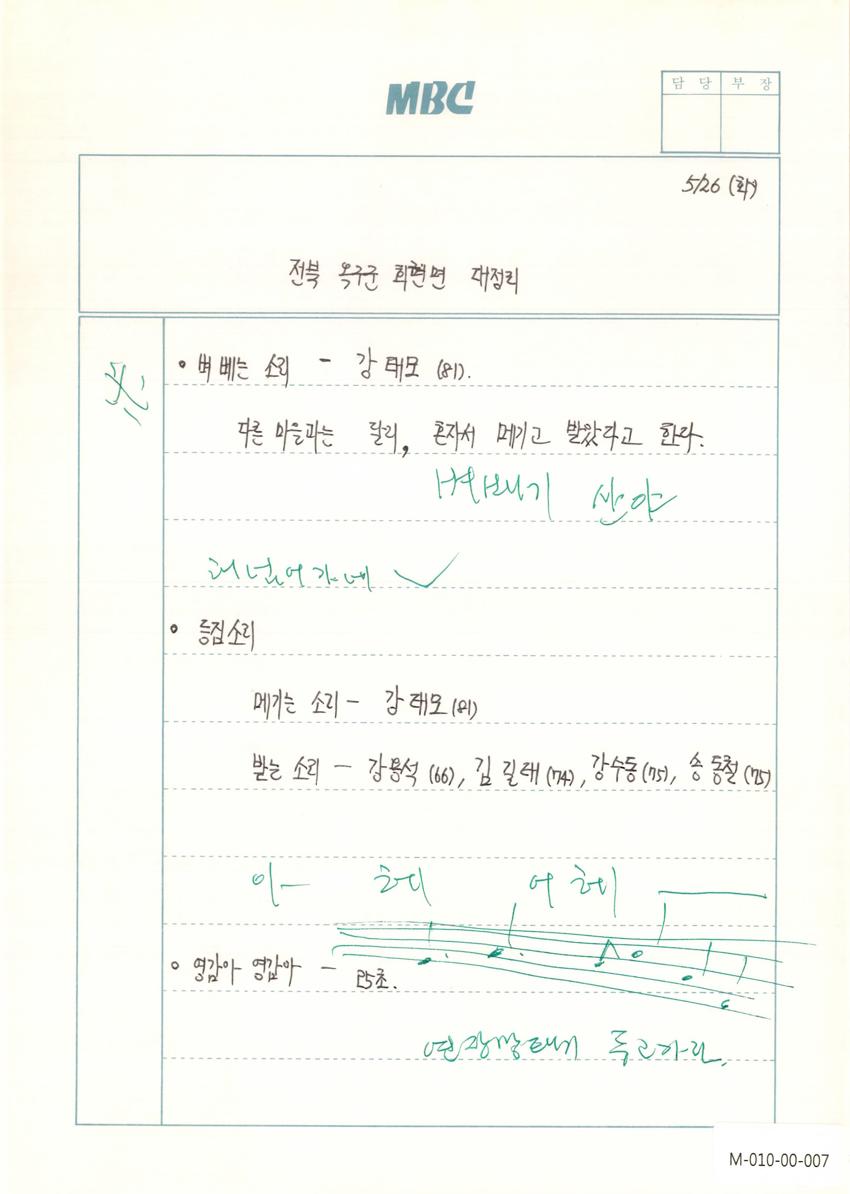 MBC
담 당 부 장
5/26 (화)
전북 옥구군 회현면 대정리
• 벼 베는 소리 - 강태모 (81).
다른 마을과는 달리, 혼자서 메기고 받았다고 한다.
산야
허 넘어가네
• 등짐소리
메기는 소리 - 강태모 (81)
받는 소리 - 강용석 (66), 김길래 (74), 강수동 (75), 송동철 (75)
아 - 허리 어 허리
• 영감아 영감아 - 25초.
연장망태기 두고가라.
M-010-00-007